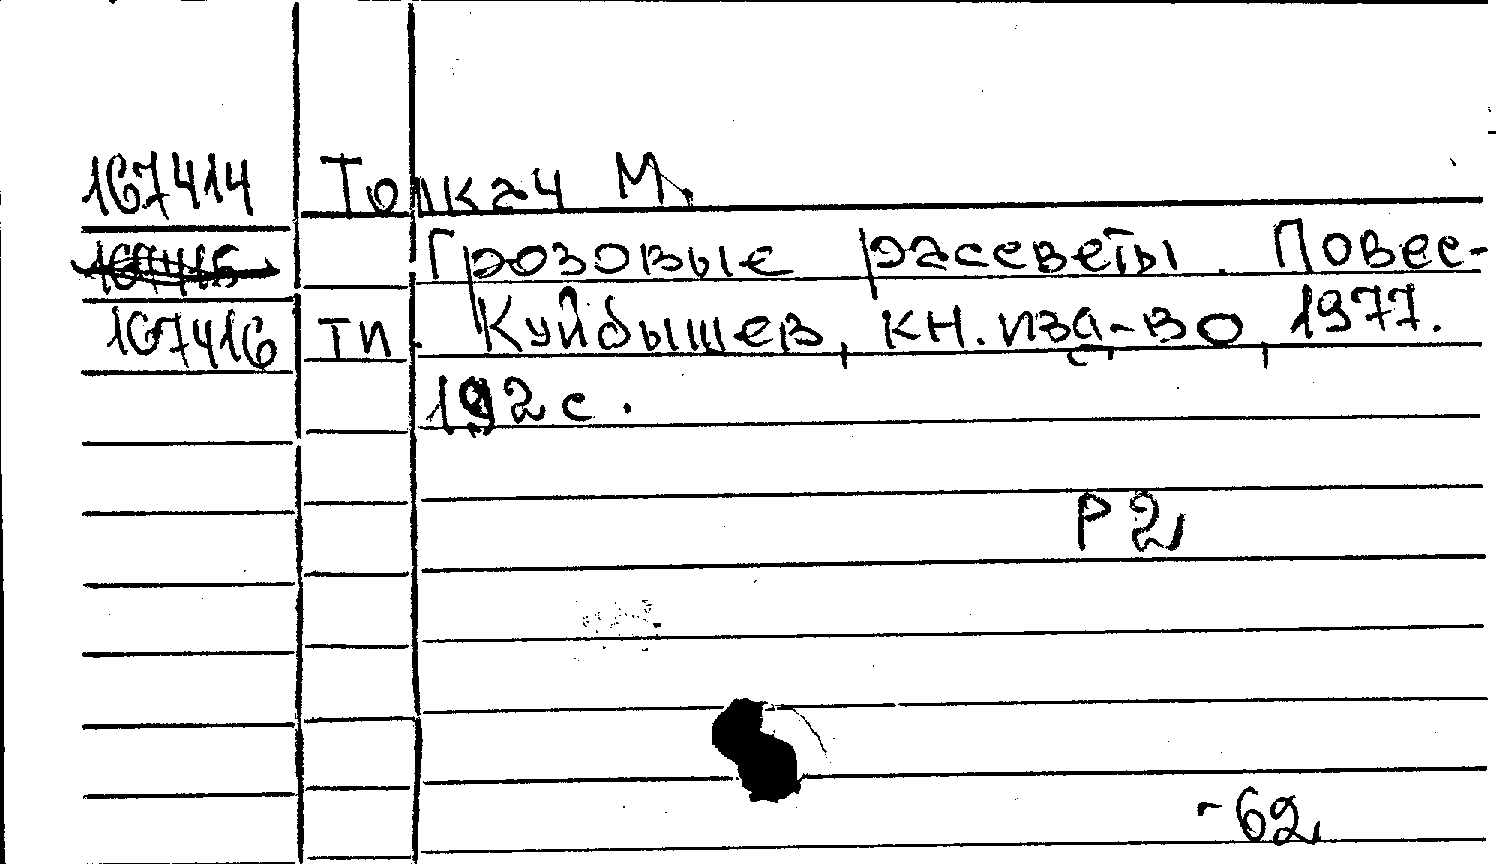 167414 Толкач М.
167415 Грозовые рассветы. Повес-
167416 ти. Куйбышев, кн. изд-во, 1977.
192 с.
Р2
-62